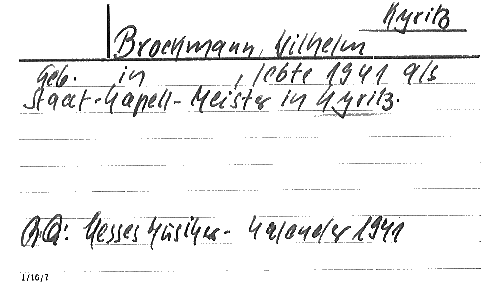 Kyritz
Brockmann, Wilhelm
Geb. in , lebte 1941 als
Staat-Kapell-Meister in Kyritz.
BQ: Hesses Musiker-Kalender 1941
1/10/7